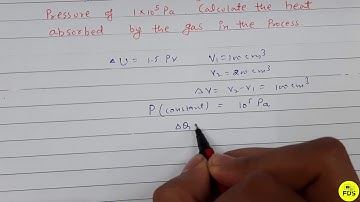 Pressure of 1×10⁵ Pa Calculate the heat
absorbed by the gas in the Process
ΔU = 1.5 PV V₁ = 100 cm³
V₂ = 200 cm³
ΔV = V₂ - V₁ = 100 cm³
P (constant) = 10⁵ Pa
ΔQ
FOS